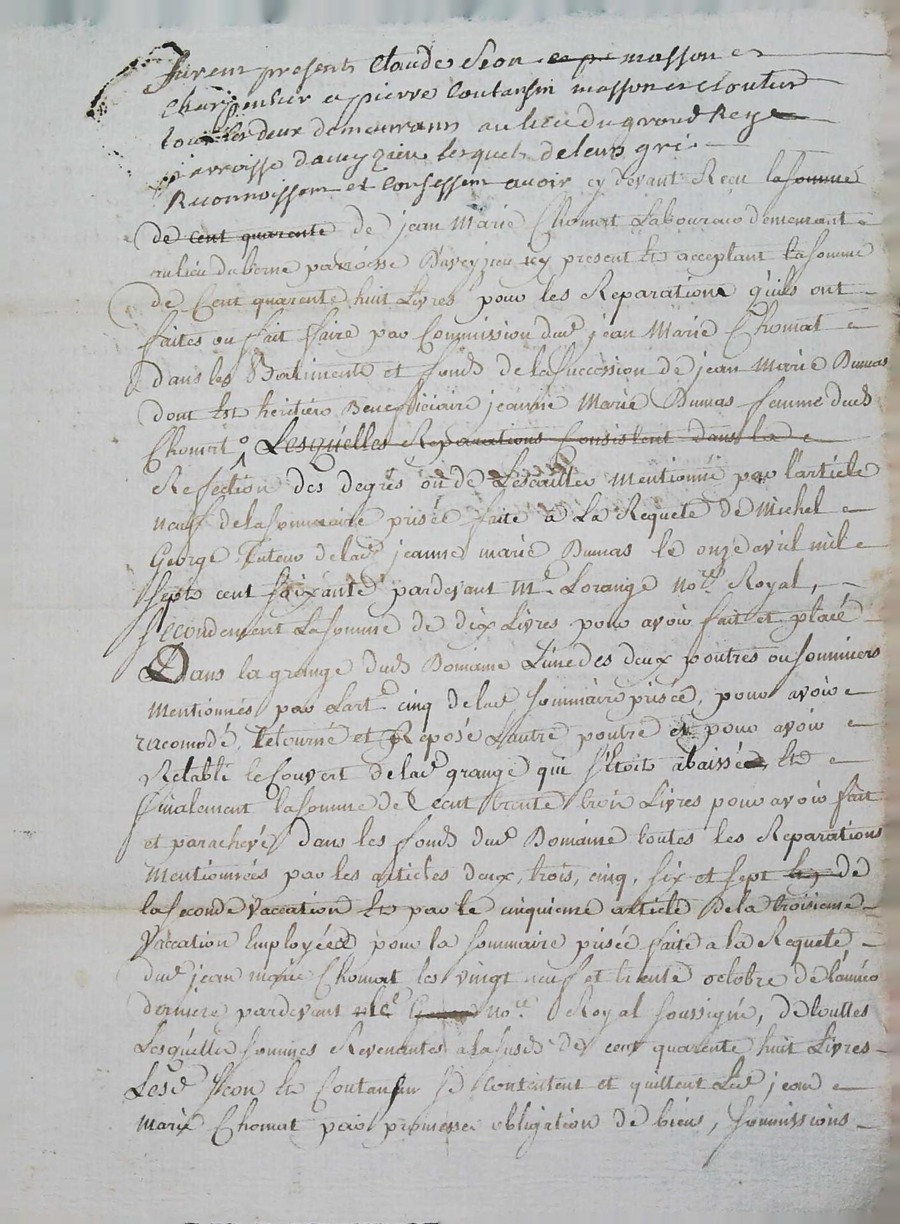 furent presents Claude Seon masson et
charpentier et pierre Coutansin masson et
tous les deux demeurans au lieu du grand Rey
parroisse daveyzieu lesquels de leurs gré
Reconnoissent et confessent avoir cy devant Recu la somme
de cent quarente de jean Marie Chomat Laboureur demeurant
au lieu daberne parroisse Daveyzieu icy present et acceptant la somme
de Cent quarente huit Livres pour les Reparations quils ont
faites ou fait faire par Commission dud jean Marie Chomat
dans les Batiments et fonds de la succession de jean Marie Dumas
dont est heritiere Beneficiaire jeanne Marie Dumas femme dud
Chomat Lesquelles Reparations Consistent dans la
Refection des degrés ou de Lescallier mentionné par larticle
neuf de la sommaire prisée faite à La Requete de Michel
George Tuteur de lad jeanne marie Dumas le onze avril mil
sept cent soixante pardevant Me Lorange nore Royal,
secondement La somme de dix Livres pour avoir fait et placé
Dans la grange dud Domaine Lune des deux poutres ou sommiers
mentionnés par Lart cinq de lad sommaire prisée, pour avoir
racomodé, Retourné et Reposé Lautre poutre et pour avoir
Retabli le Couvert de lad grange qui sétoit abaissée, Et
finalement la somme de Cent trente trois Livres pour avoir fait
et parachevé dans les fonds dud Domaine toutes les Reparations
mentionnées par les articles deux, trois, cinq, six et sept de
la seconde vaccation Et par le cinquieme article De la troisieme
Vaccation Employée pour la sommaire prisée faite a la Requete
dud jean marie Chomat les vingt neuf et trente octobre de lannée
derniere pardevant nore Royal soussigné, de toutes
Lesquelles sommes Revenantes a la susd de cent quarente huit Livres
Lesd Seon Et Coutansin se contentent et quittent Led jean
Marie Chomat par promesse obligation de biens, soumissions